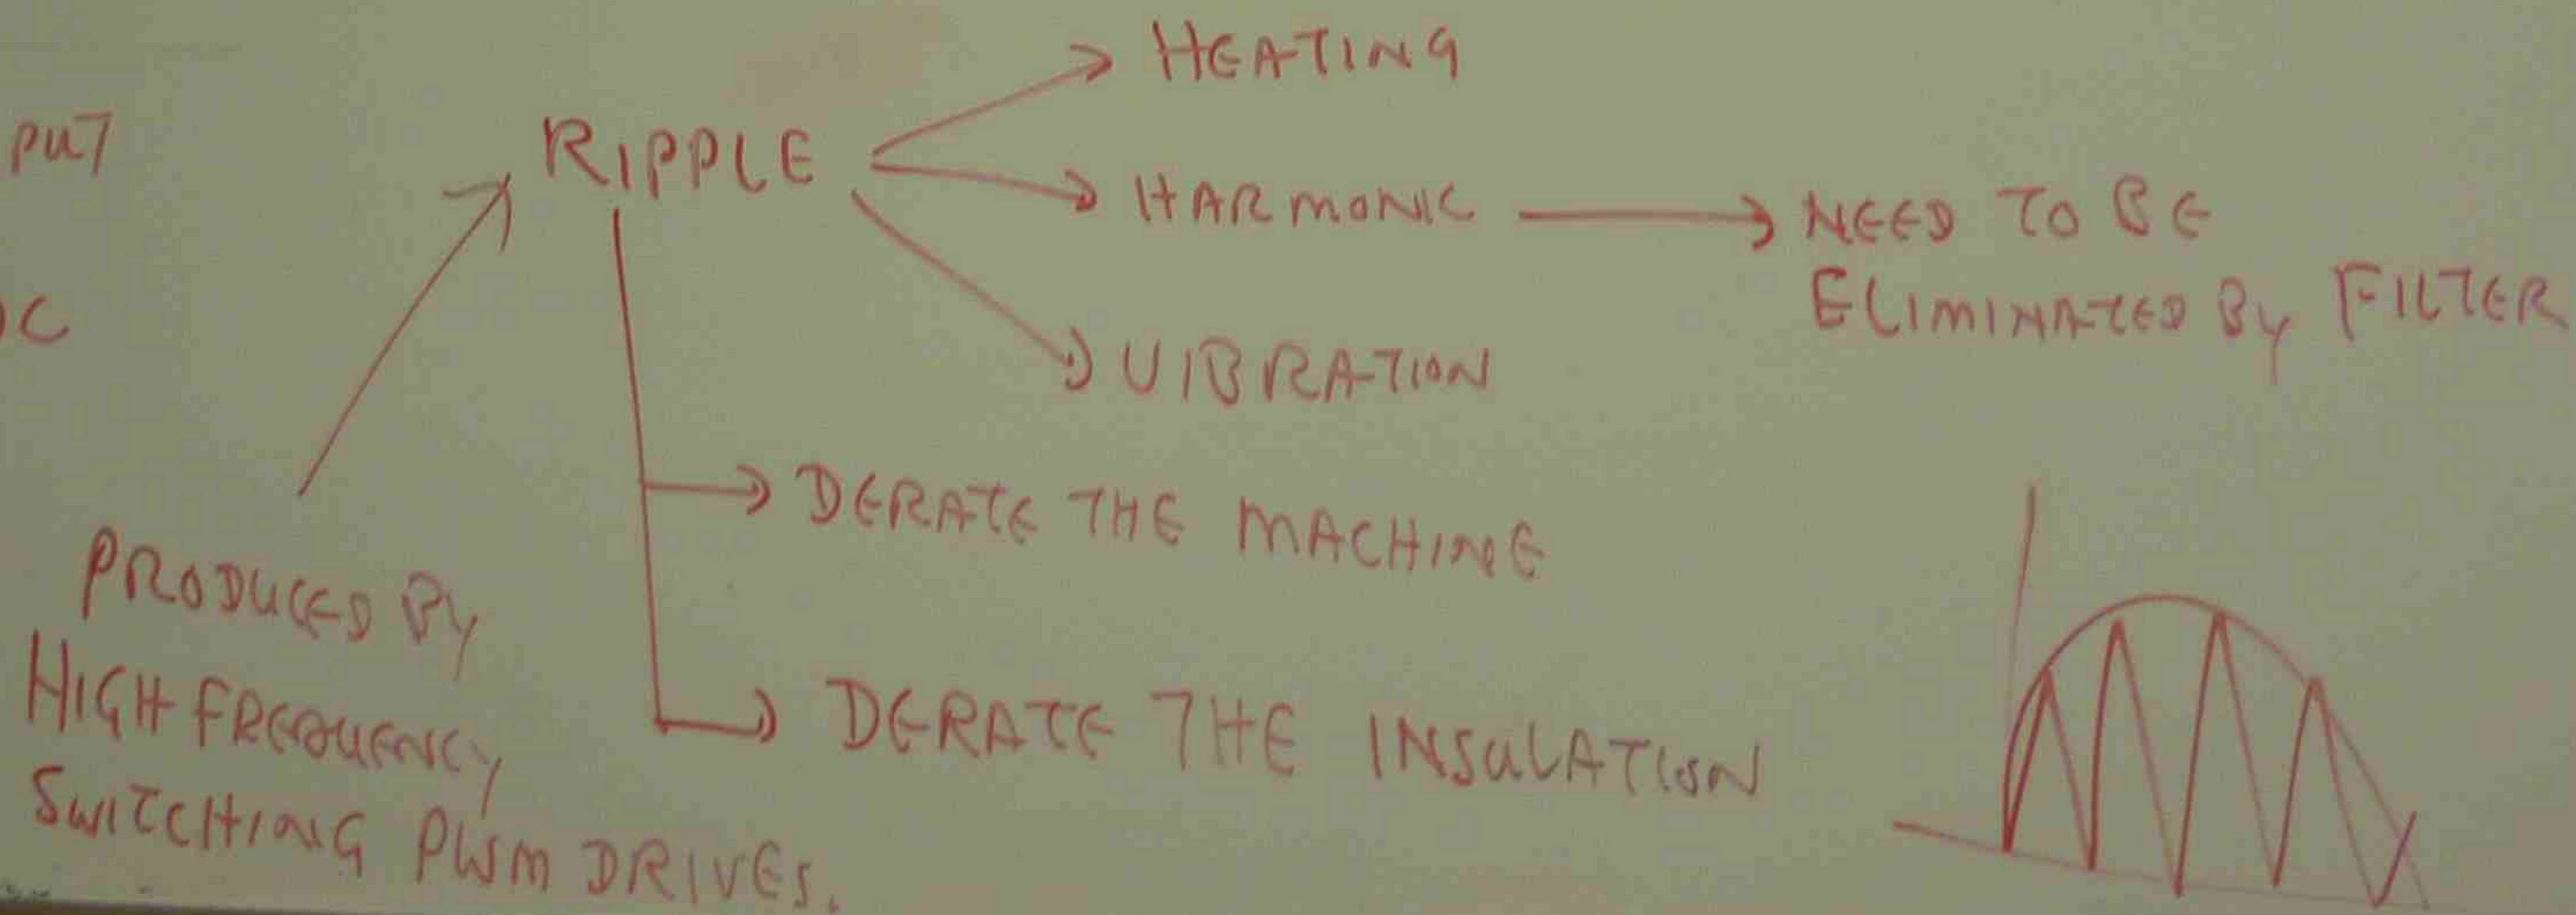 PUT
C
RIPPLE
HEATING
HARMONIC
NEED TO BE
ELIMINATED By FILTER
VIBRATION
DERATE THE MACHINE
DERATE THE INSULATION
PRODUCED By
HIGH FREQUENCY
SWITCHING PWM DRIVES.